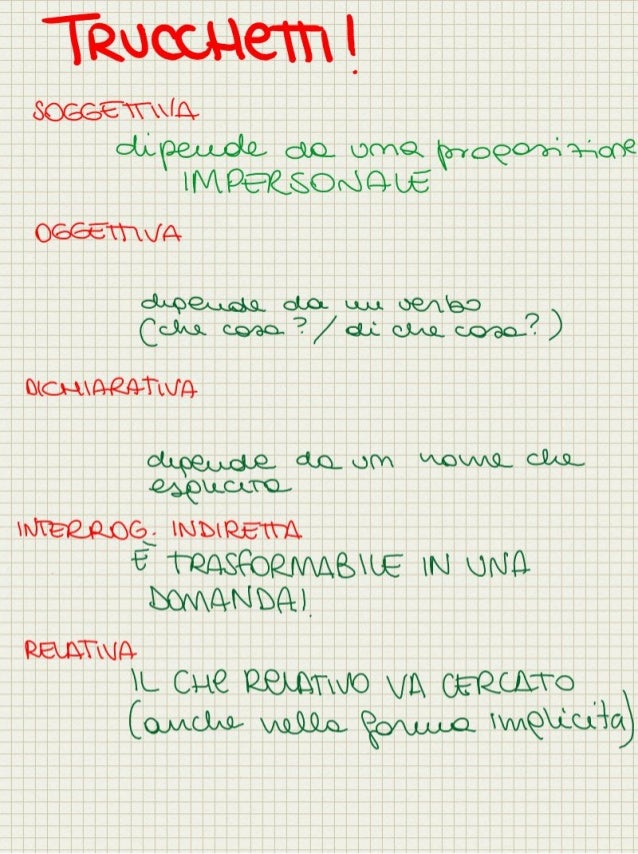 TRUCCHETTI!
SOGGETTIVA
dipende da una proposizione
IMPERSONALE
OGGETTIVA
dipende da un verbo
(che cosa?/di che cosa?)
DICHIARATIVA
dipende da un nome che
esplicita
INTERROG. INDIRETTA
È TRASFORMABILE IN UNA
DOMANDA!
RELATIVA
IL CHE RELATIVO VA CERCATO
(anche nella forma implicita)